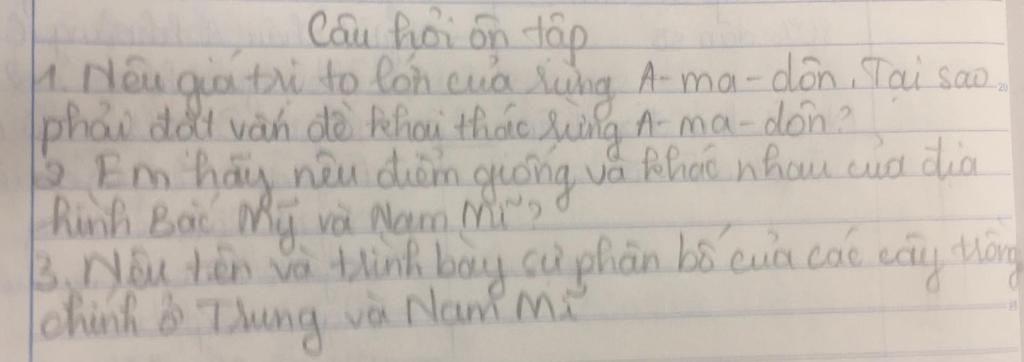 Câu hỏi ôn tập
1. Nêu giá trị to lớn của rừng A-ma-dôn. Tại sao
phải đặt vấn đề khai thác rừng A-ma-dôn?
2 Em hãy nêu điểm giống và khác nhau của địa
hình Bắc Mỹ và Nam Mĩ?
3. Nêu tên và trình bày sự phân bố của các cây trồng
chính ở Trung và Nam Mĩ